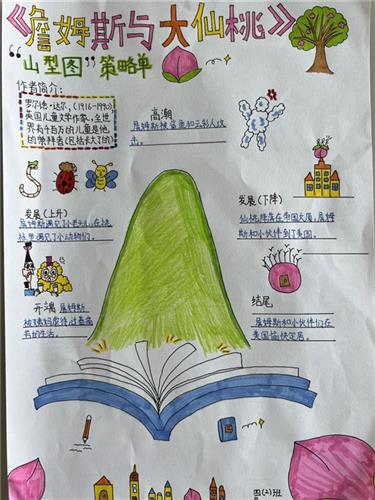 《詹姆斯与大仙桃》
“山型图”策略单
作者简介：
罗尔德·达尔，(1916-1990)
英国儿童文学作家，全世
界有千百万的儿童是他
的崇拜者(包括长大了的)
高潮
詹姆斯被鲨鱼和云彩人攻
击。
发展（上升）
詹姆斯遇见了小老头，在桃
核里遇见了小动物们。
发展（下降）
仙桃降落在帝国大厦，詹姆
斯和小伙伴到了美国。
开端
詹姆斯
被姨妈虐待过着悲
苦的生活。
结尾
詹姆斯和小伙伴们在
美国愉快定居。
四(2)班